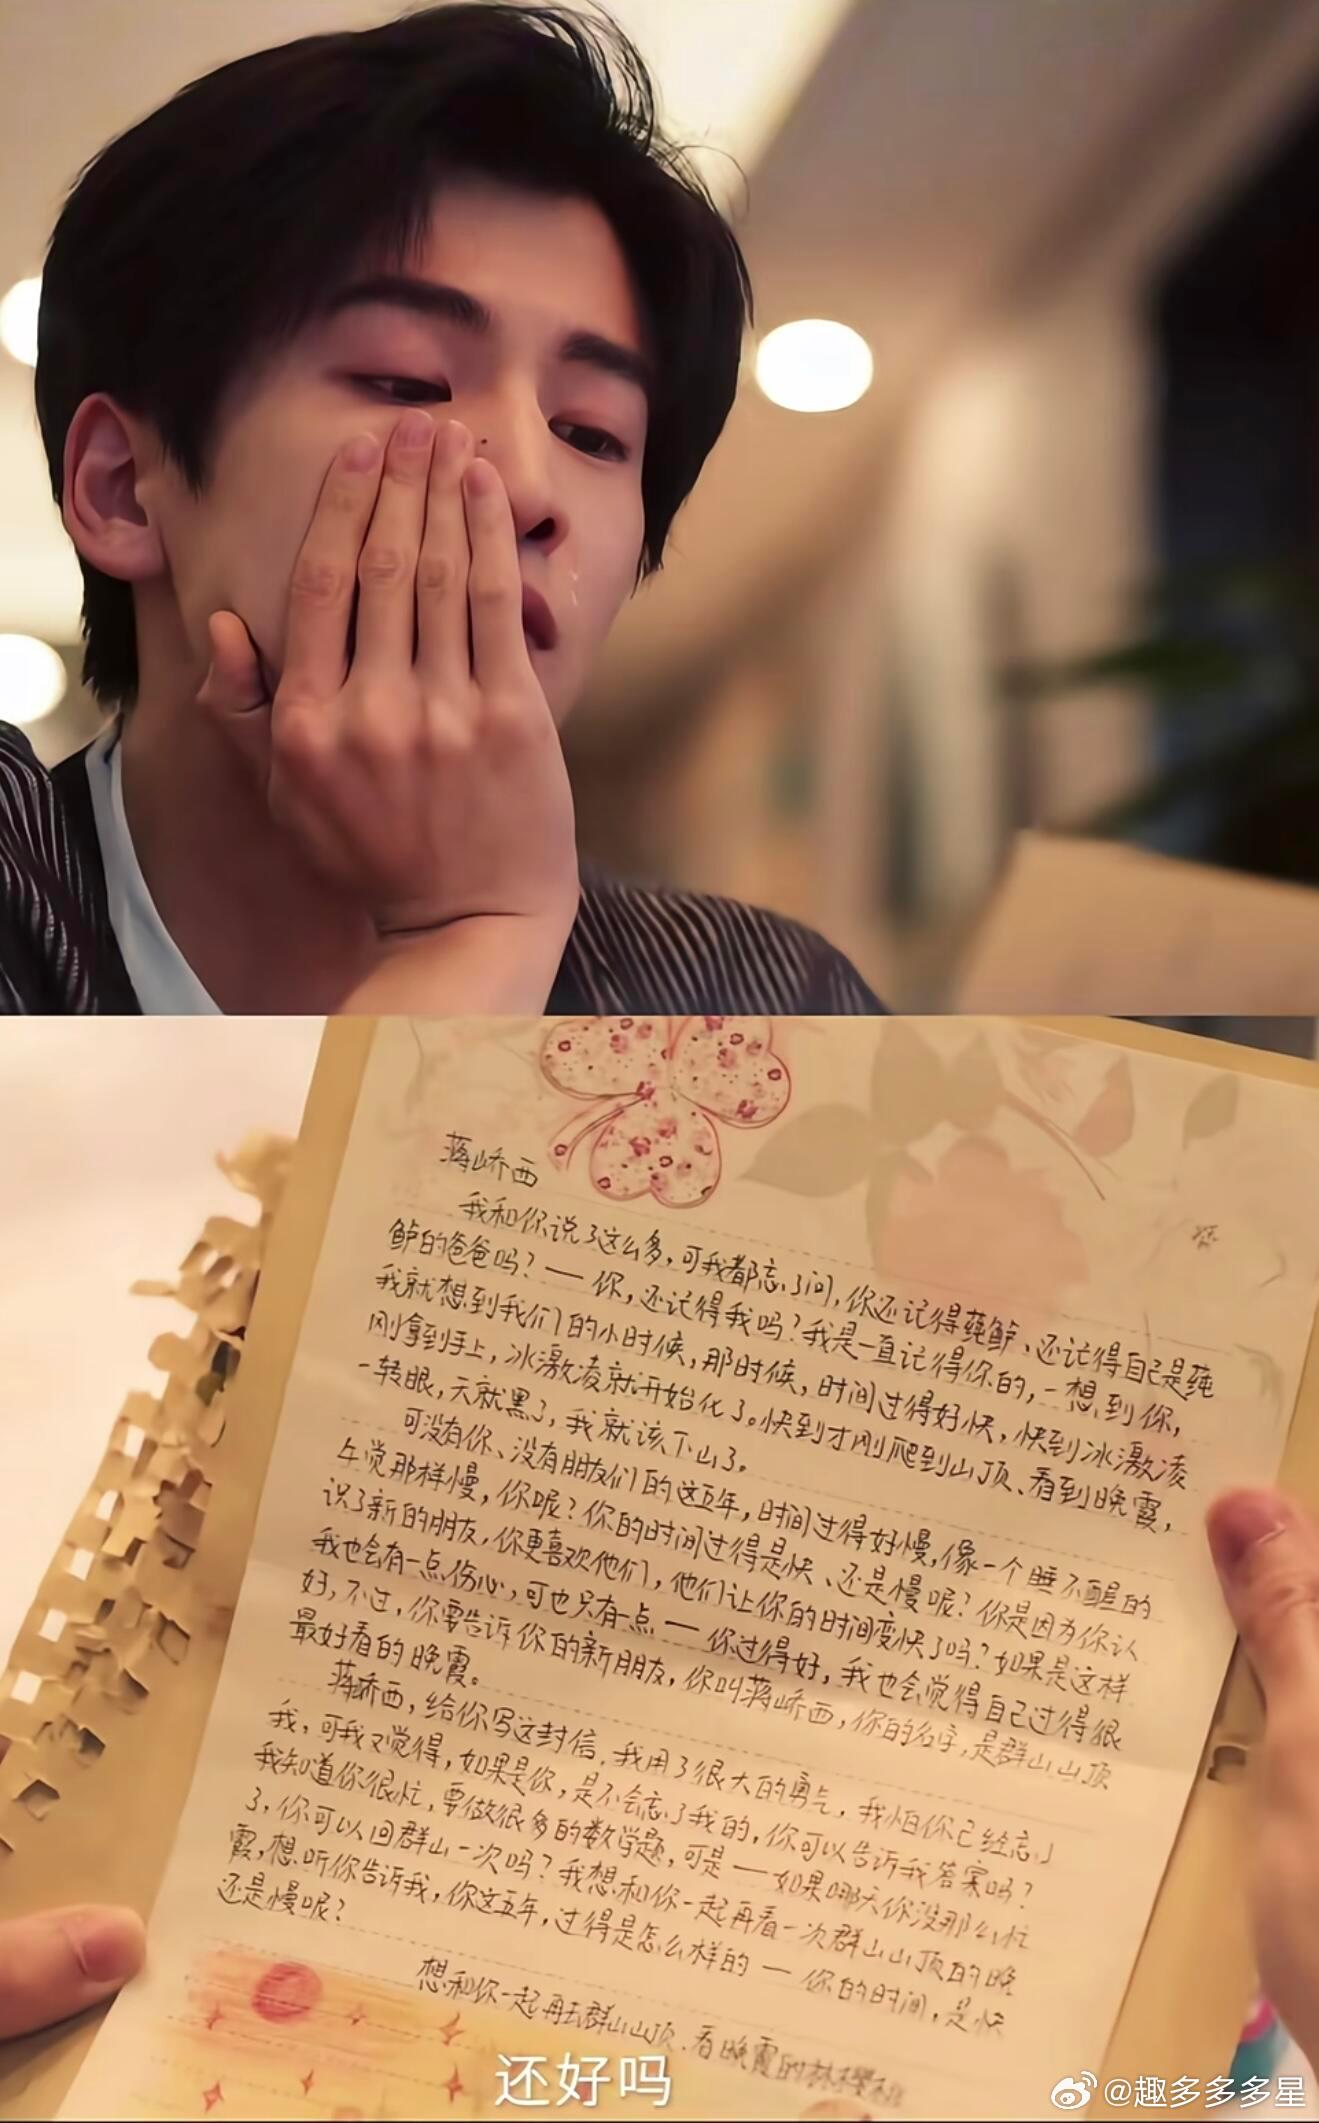 蒋峤西
我和你说了这么多，可我都忘了问，你还记得莼鲈、还记得自己是莼
鲈的爸爸吗？——你，还记得我吗？我是一直记得你的，一想到你，
我就想到我们的小时候，那时候，时间过得好快，快到冰激凌
刚拿到手上，冰激凌就开始化了。快到才刚爬到山顶、看到晚霞，
一转眼，天就黑了，我就该下山了。
可没有你、没有朋友们的这五年，时间过得好慢，像一个睡不醒的
午觉那样慢，你呢？你的时间过得是快、还是慢呢？你是因为你认
识了新的朋友，你更喜欢他们，他们让你的时间变快了吗？如果是这样
我也会有一点伤心，可也只有一点——你过得好，我也会觉得自己过得很
好，不过，你要告诉你的新朋友，你叫蒋峤西，你的名字，是群山山顶
最好看的晚霞。
蒋峤西，给你写这封信，我用了很大的勇气，我怕你已经忘了
我，可我又觉得，如果是你，是不会忘了我的，你可以告诉我答案吗？
我知道你很忙，要做很多的数学题，可是——如果哪天你没那么忙
了，你可以回群山一次吗？我想和你一起再看一次群山山顶的晚
霞，想听你告诉我，你这五年，过得是怎么样的——你的时间，是快
还是慢呢？
想和你一起再去群山山顶、看晚霞的林樱桃
还好吗
@趣多多多星